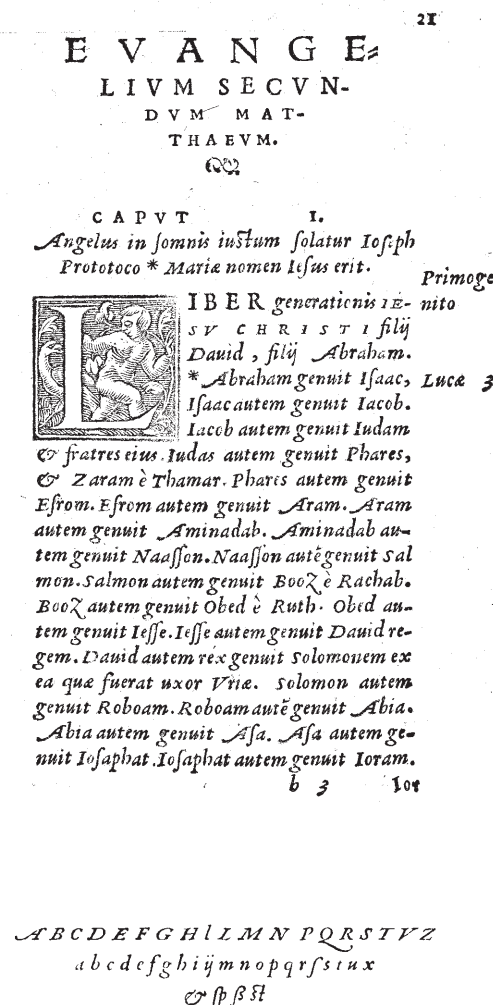 21
EVANGE-
LIVM SECVN-
DVM MAT-
THAEVM.
CAPVT I.
Angelus in ſomnis iuſtum ſolatur Ioſeph
Prototoco * Mariæ nomen Ieſus erit.
Primoge
nito
LIBER generationis IE-
SV CHRISTI filij
Dauid, filij Abraham.
* Abraham genuit Iſaac,
Lucæ 3
Iſaac autem genuit Iacob.
Iacob autem genuit Iudam
& fratres eius. Iudas autem genuit Phares,
& Zaram è Thamar. Phares autem genuit
Eſrom. Eſrom autem genuit Aram. Aram
autem genuit Aminadab. Aminadab au-
tem genuit Naaſſon. Naaſſon autē genuit Sal
mon. Salmon autem genuit Booz è Rachab.
Booz autem genuit Obed è Ruth. Obed au-
tem genuit Ieſſe. Ieſſe autem genuit Dauid re-
gem. Dauid autem réx genuit Solomonem ex
ea quæ fuerat uxor Vriæ. Solomon autem
genuit Roboam. Roboam autē genuit Abia.
Abia autem genuit Aſa. Aſa autem ge-
nuit Ioſaphat. Ioſaphat autem genuit Ioram.
b 3 Ior
A B C D E F G H I L M N P Q R S T V Z
a b c d e f g h i ij m n o p q r ſ s t u x
& ſp ß ſt